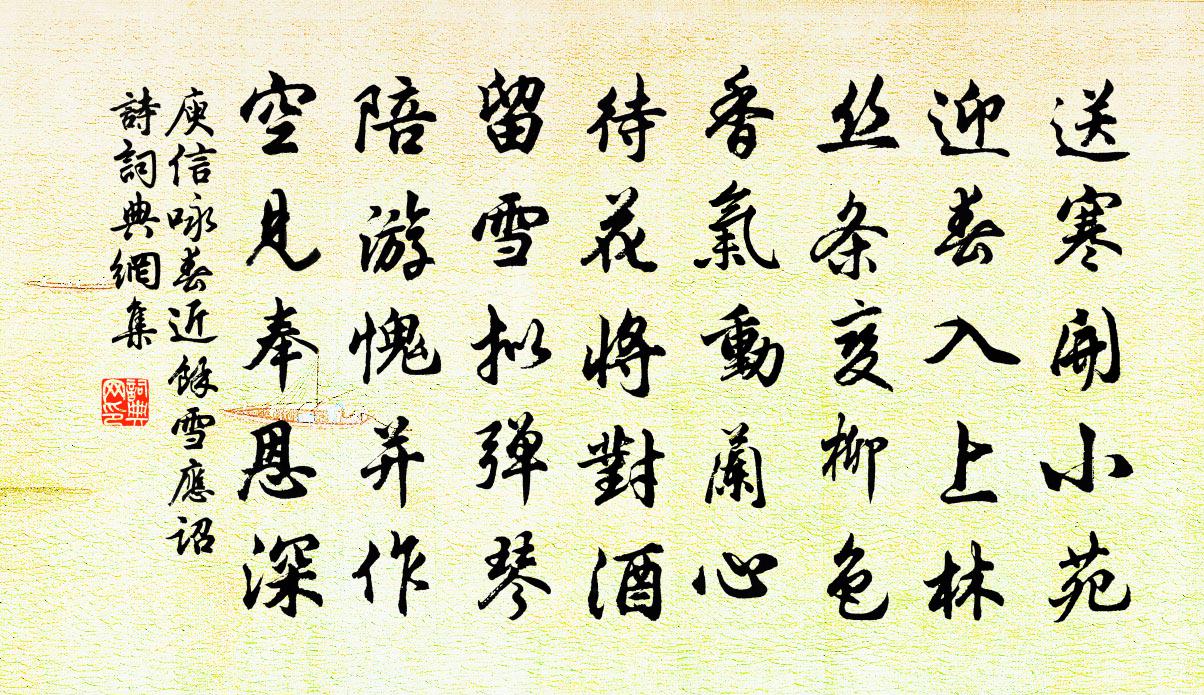 送寒開小苑
迎春入上林
丝条变柳色
香氣動蘭心
待花將對酒
留雪拟弹琴
陪游愧并作
空見奉恩深
庾信咏春近餘雪應詔
詩詞典網集
詞典网印